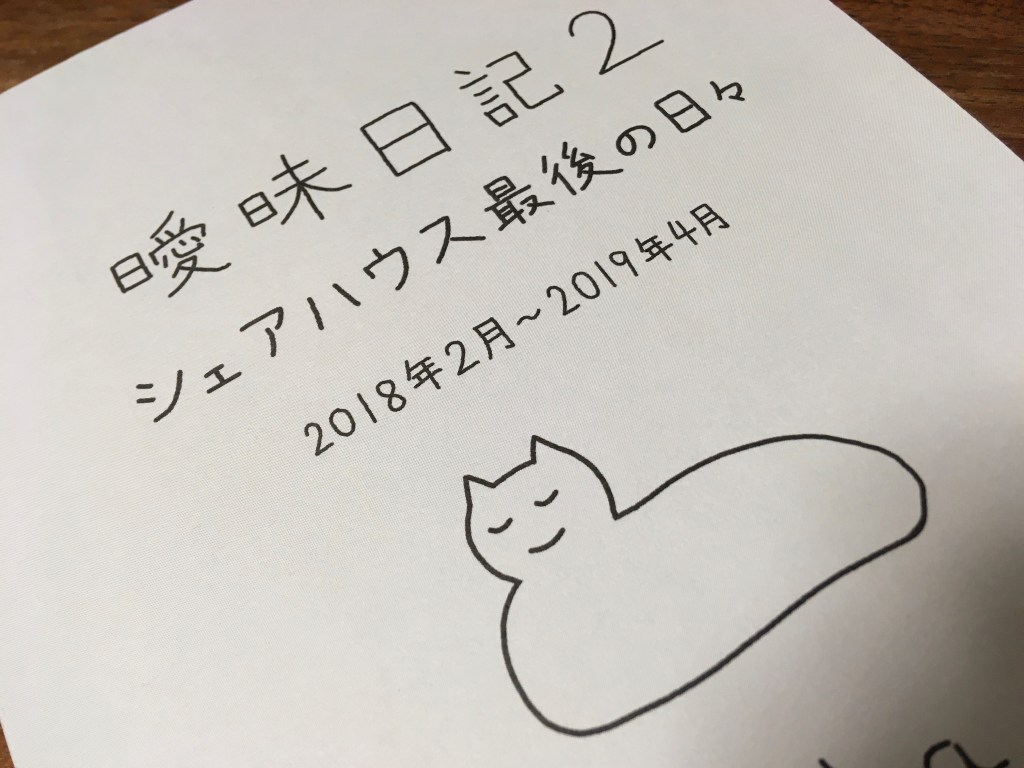 曖昧日記2
シェアハウス最後の日々
2018年2月~2019年4月